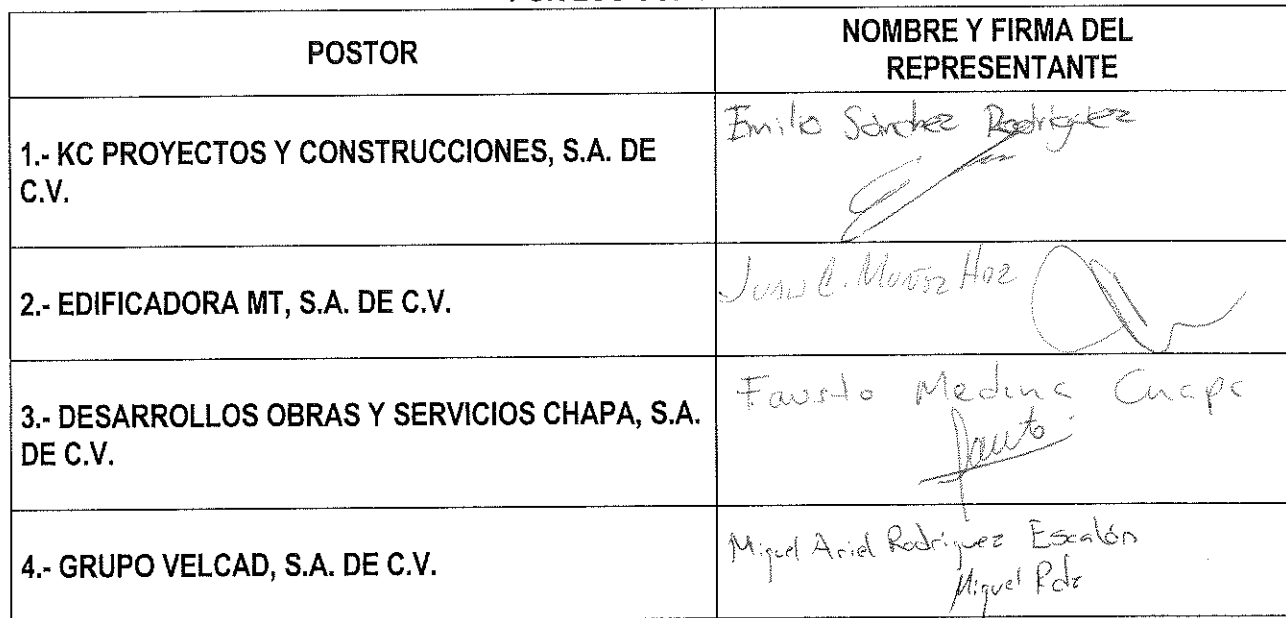 POSTOR
NOMBRE Y FIRMA DEL
REPRESENTANTE
1.- KC PROYECTOS Y CONSTRUCCIONES, S.A. DE
C.V.
Emilio Sánchez Rodríguez
2.- EDIFICADORA MT, S.A. DE C.V.
JUAN C. MUÑOZ
3.- DESARROLLOS OBRAS Y SERVICIOS CHAPA, S.A.
DE C.V.
Fausto Medina Chapa
Fausto
4.- GRUPO VELCAD, S.A. DE C.V.
Miguel Ariel Rodríguez Escalón
Miguel Rdz